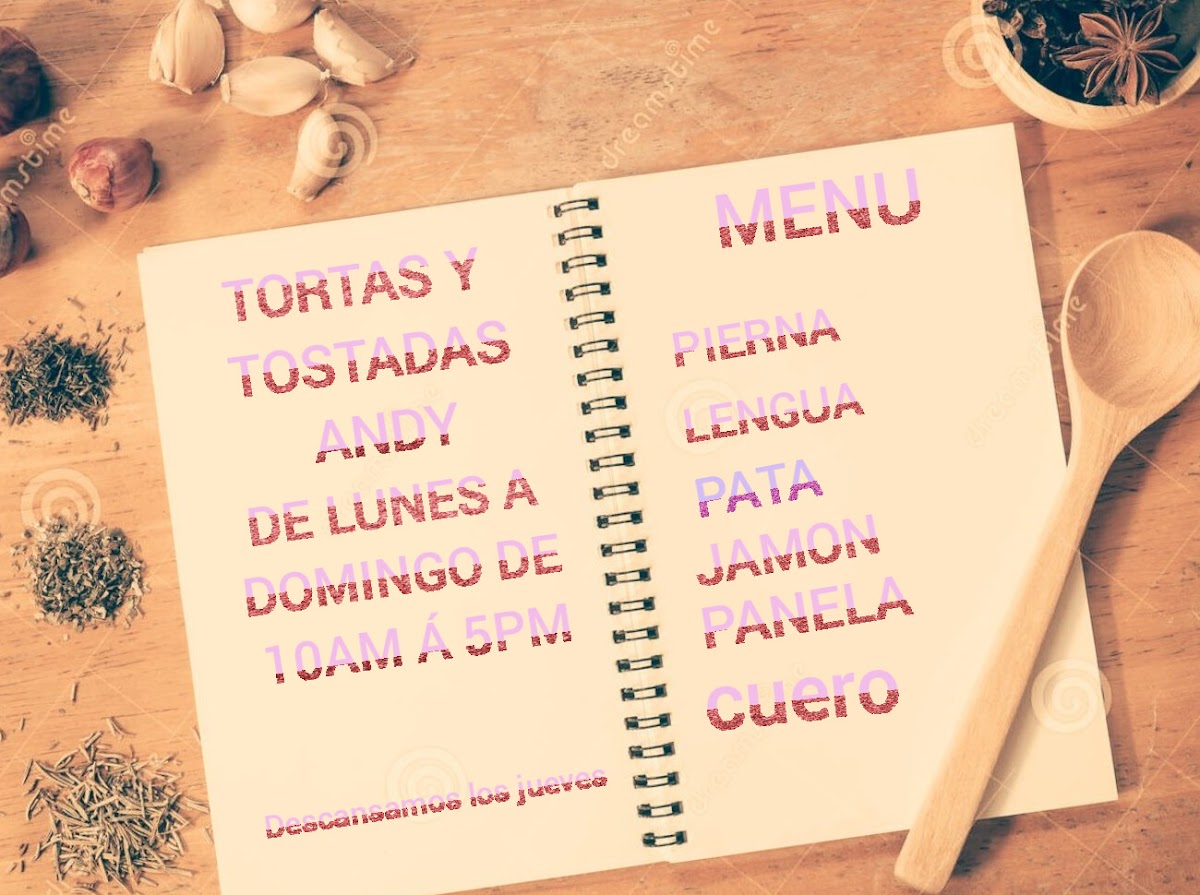 TORTAS Y
TOSTADAS
ANDY
DE LUNES A
DOMINGO DE
10AM Á 5PM
Descansamos los jueves
MENU
PIERNA
LENGUA
PATA
JAMON
PANELA
cuero
dreamstime
dreamstime
dreamstime